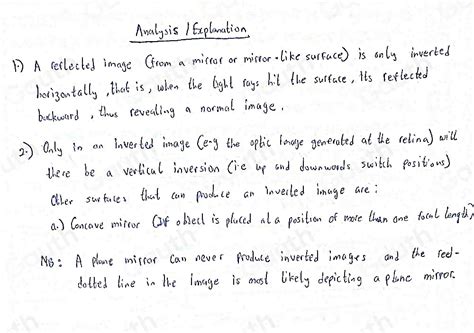 Analysis / Explanation
1.) A reflected image (from a mirror or mirror-like surface) is only inverted
horizontally, that is, when the light rays hit the surface, its reflected
backward, thus revealing a normal image.
2.) Only in an Inverted image (e-g the optic Image generated at the retina) will
there be a vertical inversion (i.e up and downwards switch positions)
Other surfaces that can produce an Inverted image are:
a.) Concave mirror (If object is placed at a position of more than one focal length)
NB: A plane mirror can never produce inverted images and the red-
dotted line in the Image is most likely depicting a plane mirror.